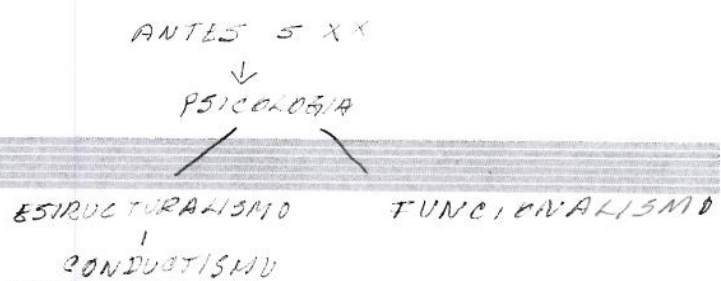 ANTES S XX
PSICOLOGIA
ESTRUCTURALISMO FUNCIONALISMO
CONDUCTISMO